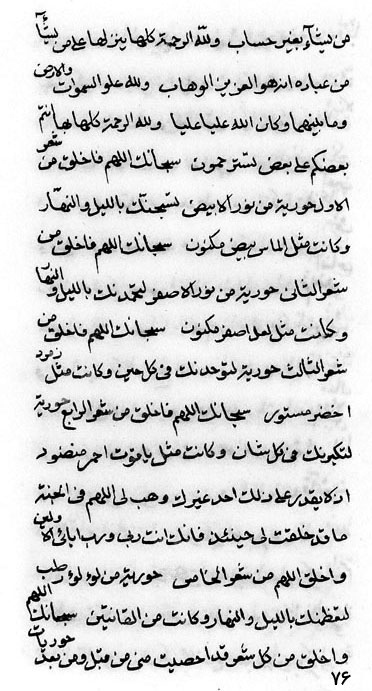 من يشآء بغير حساب ولله الرحمة كلها ينزلها على من يشآء
من عباده انه هو العزيز الوهاب ولله علو السموات والارض
وما بينهما وكان الله عليا عليا ولله الرحمة كلها بها انتم
بعضكم على بعض تسترحمون سبحانك اللهم فاخلق من شعر
الاول حورية من نور الابيض لتسبحنك بالليل والنهار
وكانت مثل الماس بيض مكنون سبحانك اللهم فاخلق من
شعر الثانى حورية من نور الاصفر لتحمدنك بالليل والنهار
وكانت مثل لعل اصفر مكنون سبحانك اللهم فاخلق من
شعر الثالث حورية لتوحدنك فى كل حين وكانت مثل زمرد
اخضر مستور سبحانك اللهم فاخلق من شعر الرابع حورية
لتكبرنك فى كل شان وكانت مثل ياقوت احمر منضود
اذ لا يقدر على ذلك احد غيرك وهب لى اللهم فى الجنة
ما قد خلقت لى حينئذ فانك انت ربى ورب ابائى الاولين
واخلق اللهم من شعر الخامس حورية من لوءلوء رطب
لتعظمنك بالليل والنهار وكانت من القانتين سبحانك اللهم
واخلق من كل شعر قد احصيت منى من قبل ومن بعد حوريات
٧۶